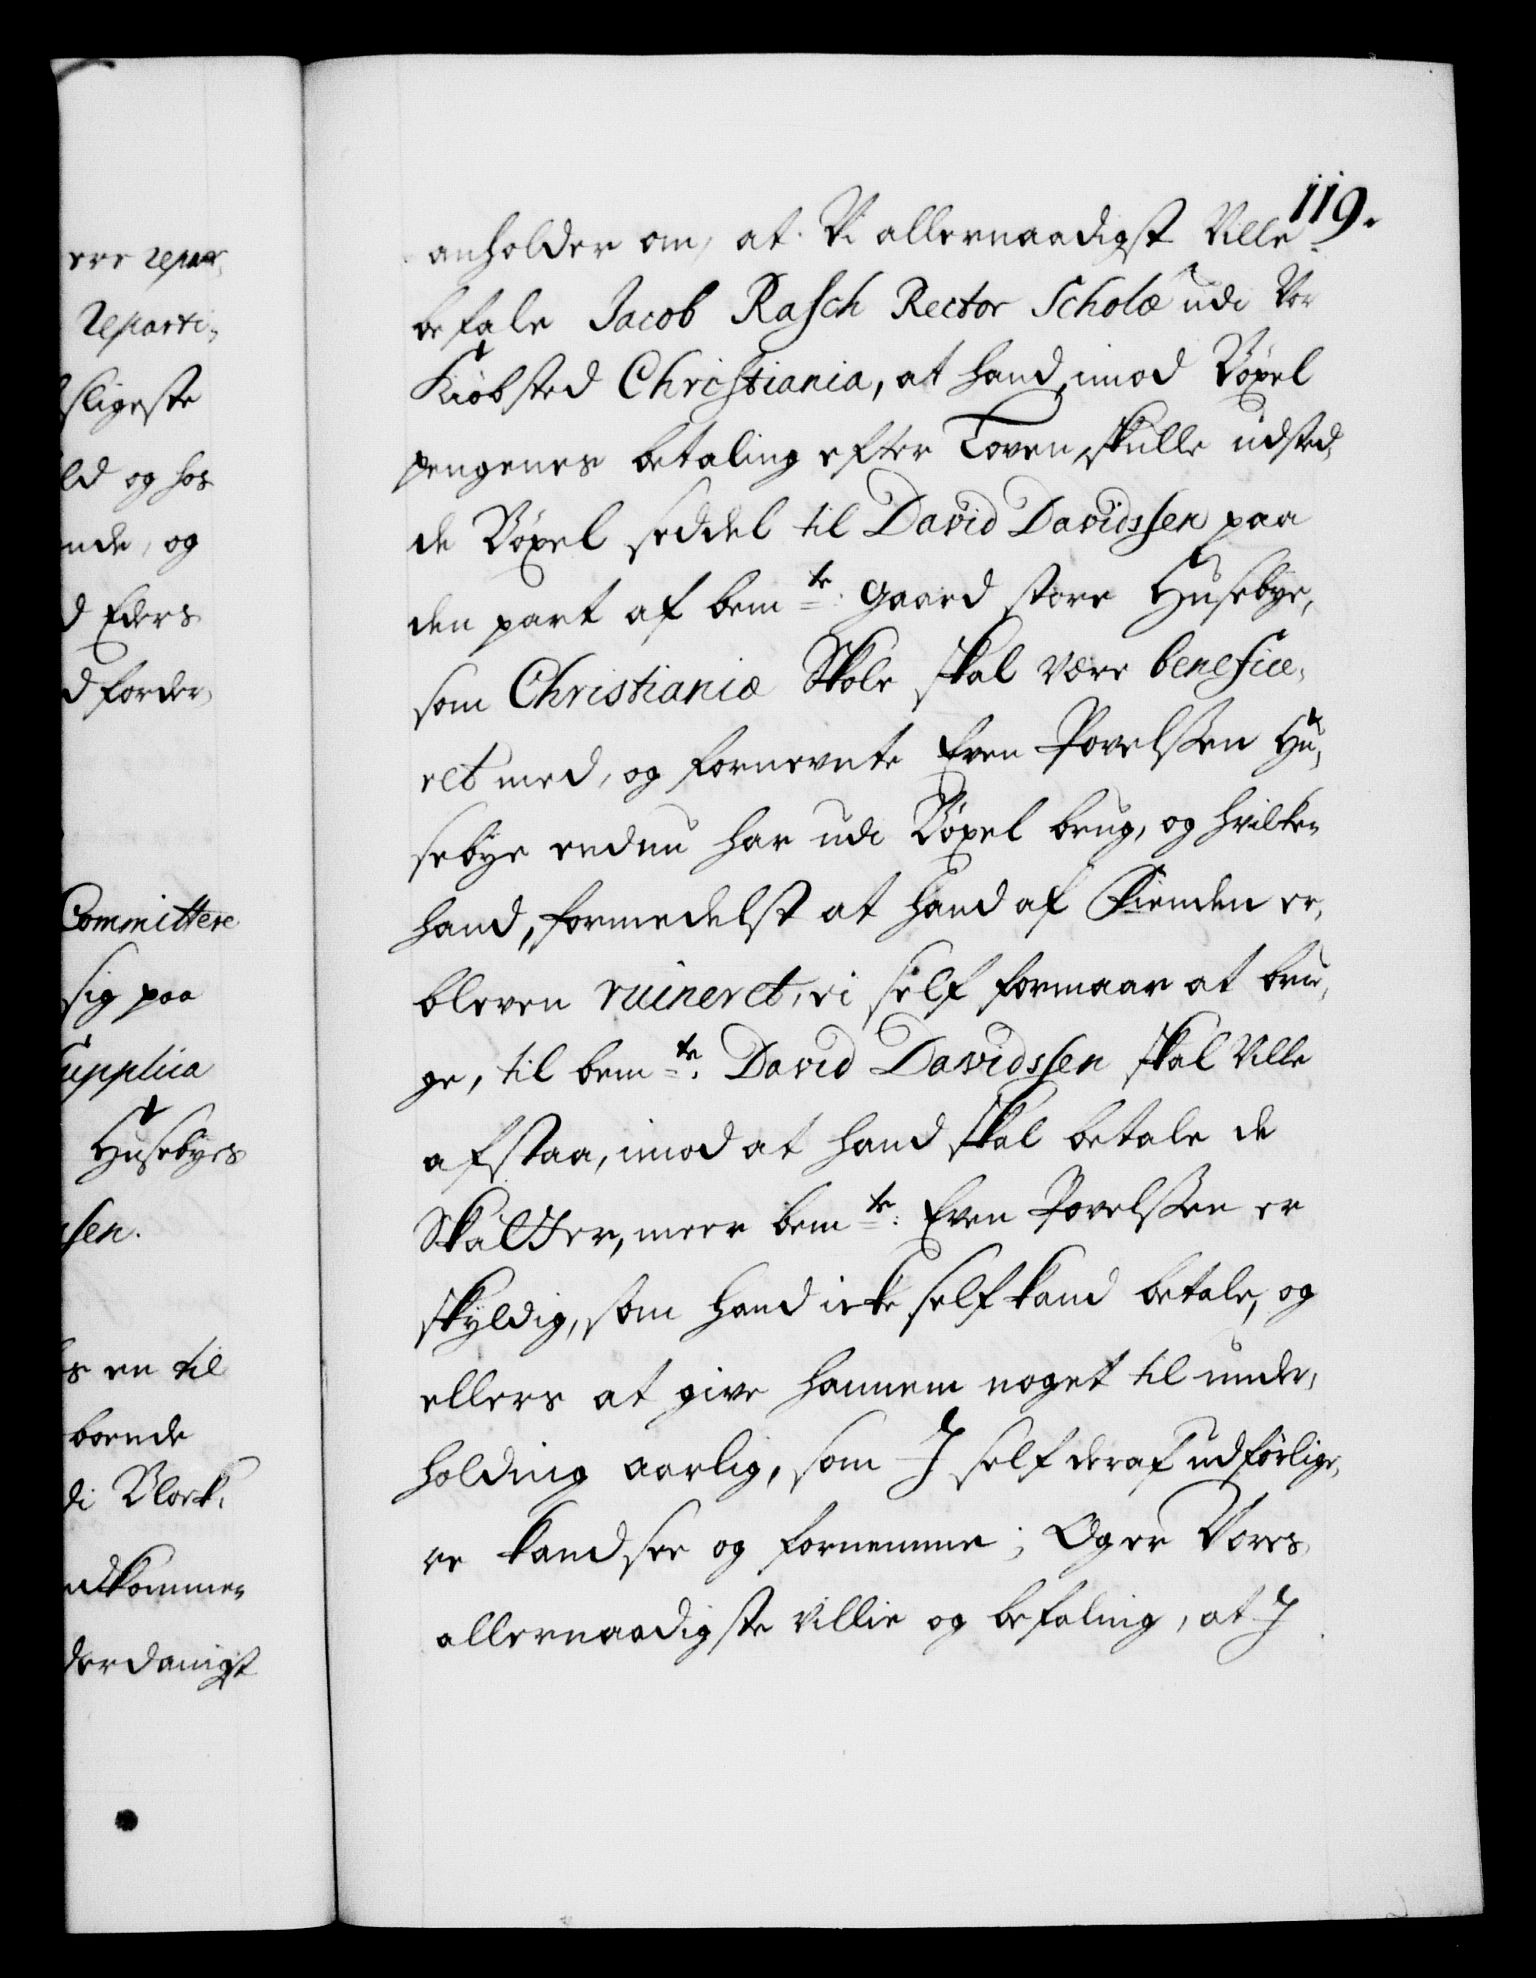 ere repar,
Reparti-
sligeste
ld og hos
nde, og
d Eders
d forder,
Committere
sig paa
Supplica
Husebyes
ssen.
s en til
boende
di Block,
udkommen
derdanigst
119.
anholder om, at Vi allernaadigst Ville
befale Jacob Rasch Rector Scholæ udi Vor
Kiøbsted Christiania, at hand imod Böxel
pengenes betaling efter Loven skulle udsted,
de Böxel seddel til David Davidssen paa
den part af bemte: gaard store Husebye,
som Christianiæ Skole skal være benefice,
ret med, og fornevnte Even Povelssen Hu,
sebye endnu har udi Böxel brug, og hvilken
hand, formedelst at hand af Fienden er,
bleven ruineret, ei self formaar at bru,
ge, til bemte: David Davidssen skal Ville
afstaa, imod at hand skal betale de
Skatter, meer bemte: Even Povelssen er
skyldig, som hand icke self kand betale, og
ellers at give hannem noget til under,
holding aarlig, som J self deraf udførlige,
re kand see og fornemme; Og er Vores
allernaadigste Villie og befaling, at J